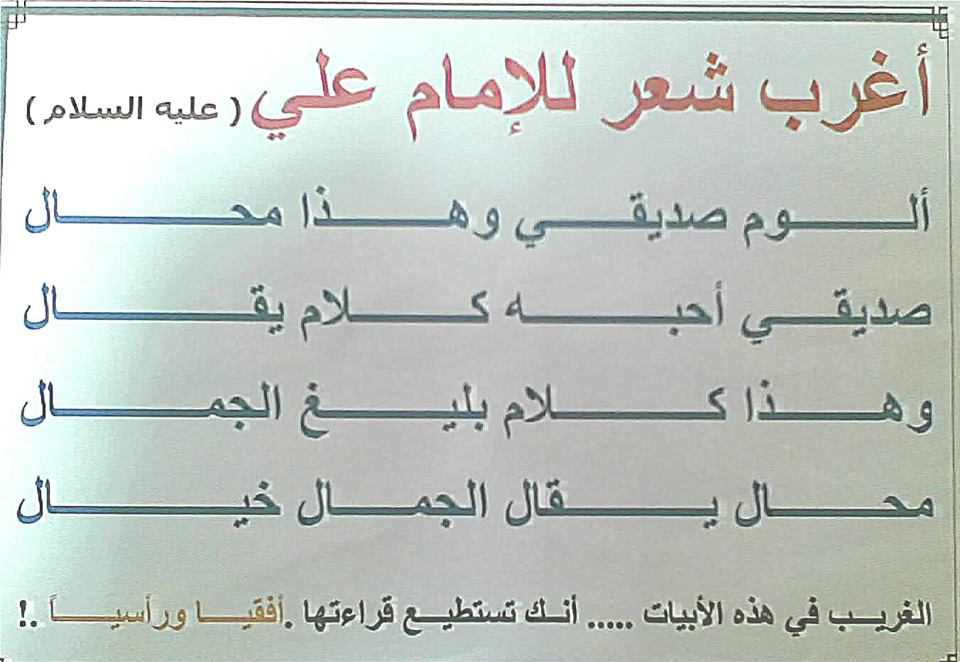 أغرب شعر للإمام علي ( عليه السلام )
ألوم صديقي وهذا محال
صديقي أحبه كلام يقال
وهذا كلام بليغ الجمال
محال يقال الجمال خيال
الغريب في هذه الأبيات ..... أنك تستطيع قراءتها .أفقيا ورأسياً .!